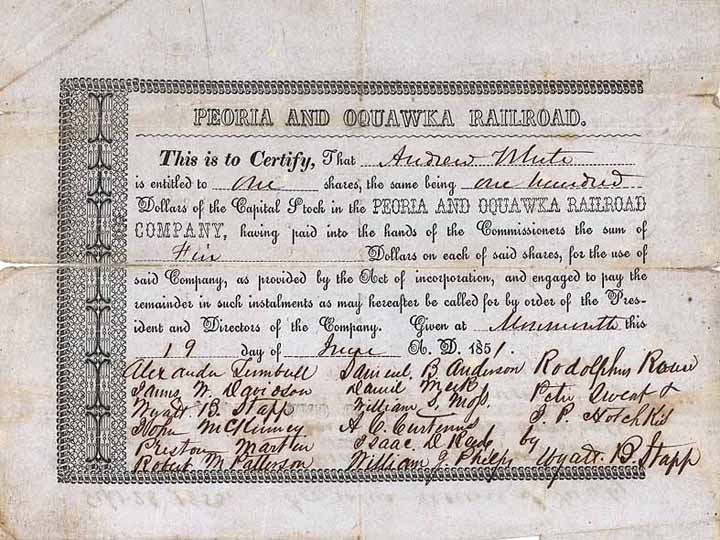 PEORIA AND OQUAWKA RAILROAD.
This is to Certify, That Andrew White
is entitled to one shares, the same being one hundred
Dollars of the Capital Stock in the PEORIA AND OQUAWKA RAILROAD
COMPANY, having paid into the hands of the Commissioners the sum of
Dollars on each of said shares, for the use of
said Company, as provided by the Act of incorporation, and engaged to pay the
remainder in such instalments as may hereafter be called for by order of the Pres-
ident and Directors of the Company. Given at Monmouth this
19 day of June A. D. 1851.
Alexander Turnbull Samuel B Anderson Rodolphus Rouse
James W. Davidson Daniel Meek Peter &
Wyatt B. Stapp William S. Moss J. P. Hotchkis
John McKinney A C Curtenus
Preston Martin Isaac D by
Robert M Patterson William J Phelps Wyatt. B. Stapp